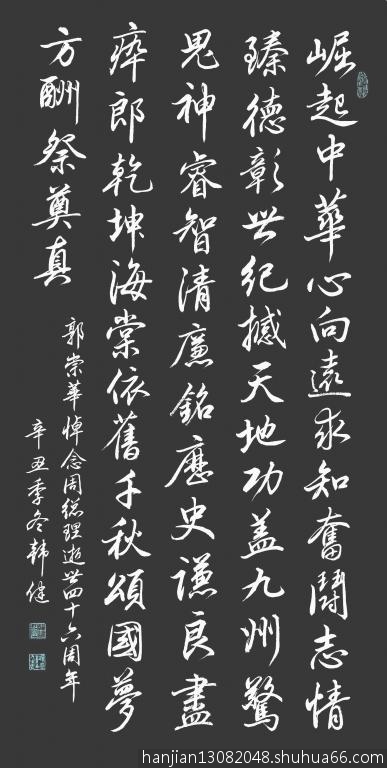 崛起中華心向遠求知奮鬪志情
臻德彰世纪撼天地功盖九州驚
鬼神睿智清廉銘歷史謙良盡
瘁郎乾坤海棠依舊千秋頌國夢
方酬祭奠真
郭崇華悼念周總理逝世四十六周年
辛丑季冬韩健
hanjian13082048.shuhua66.com